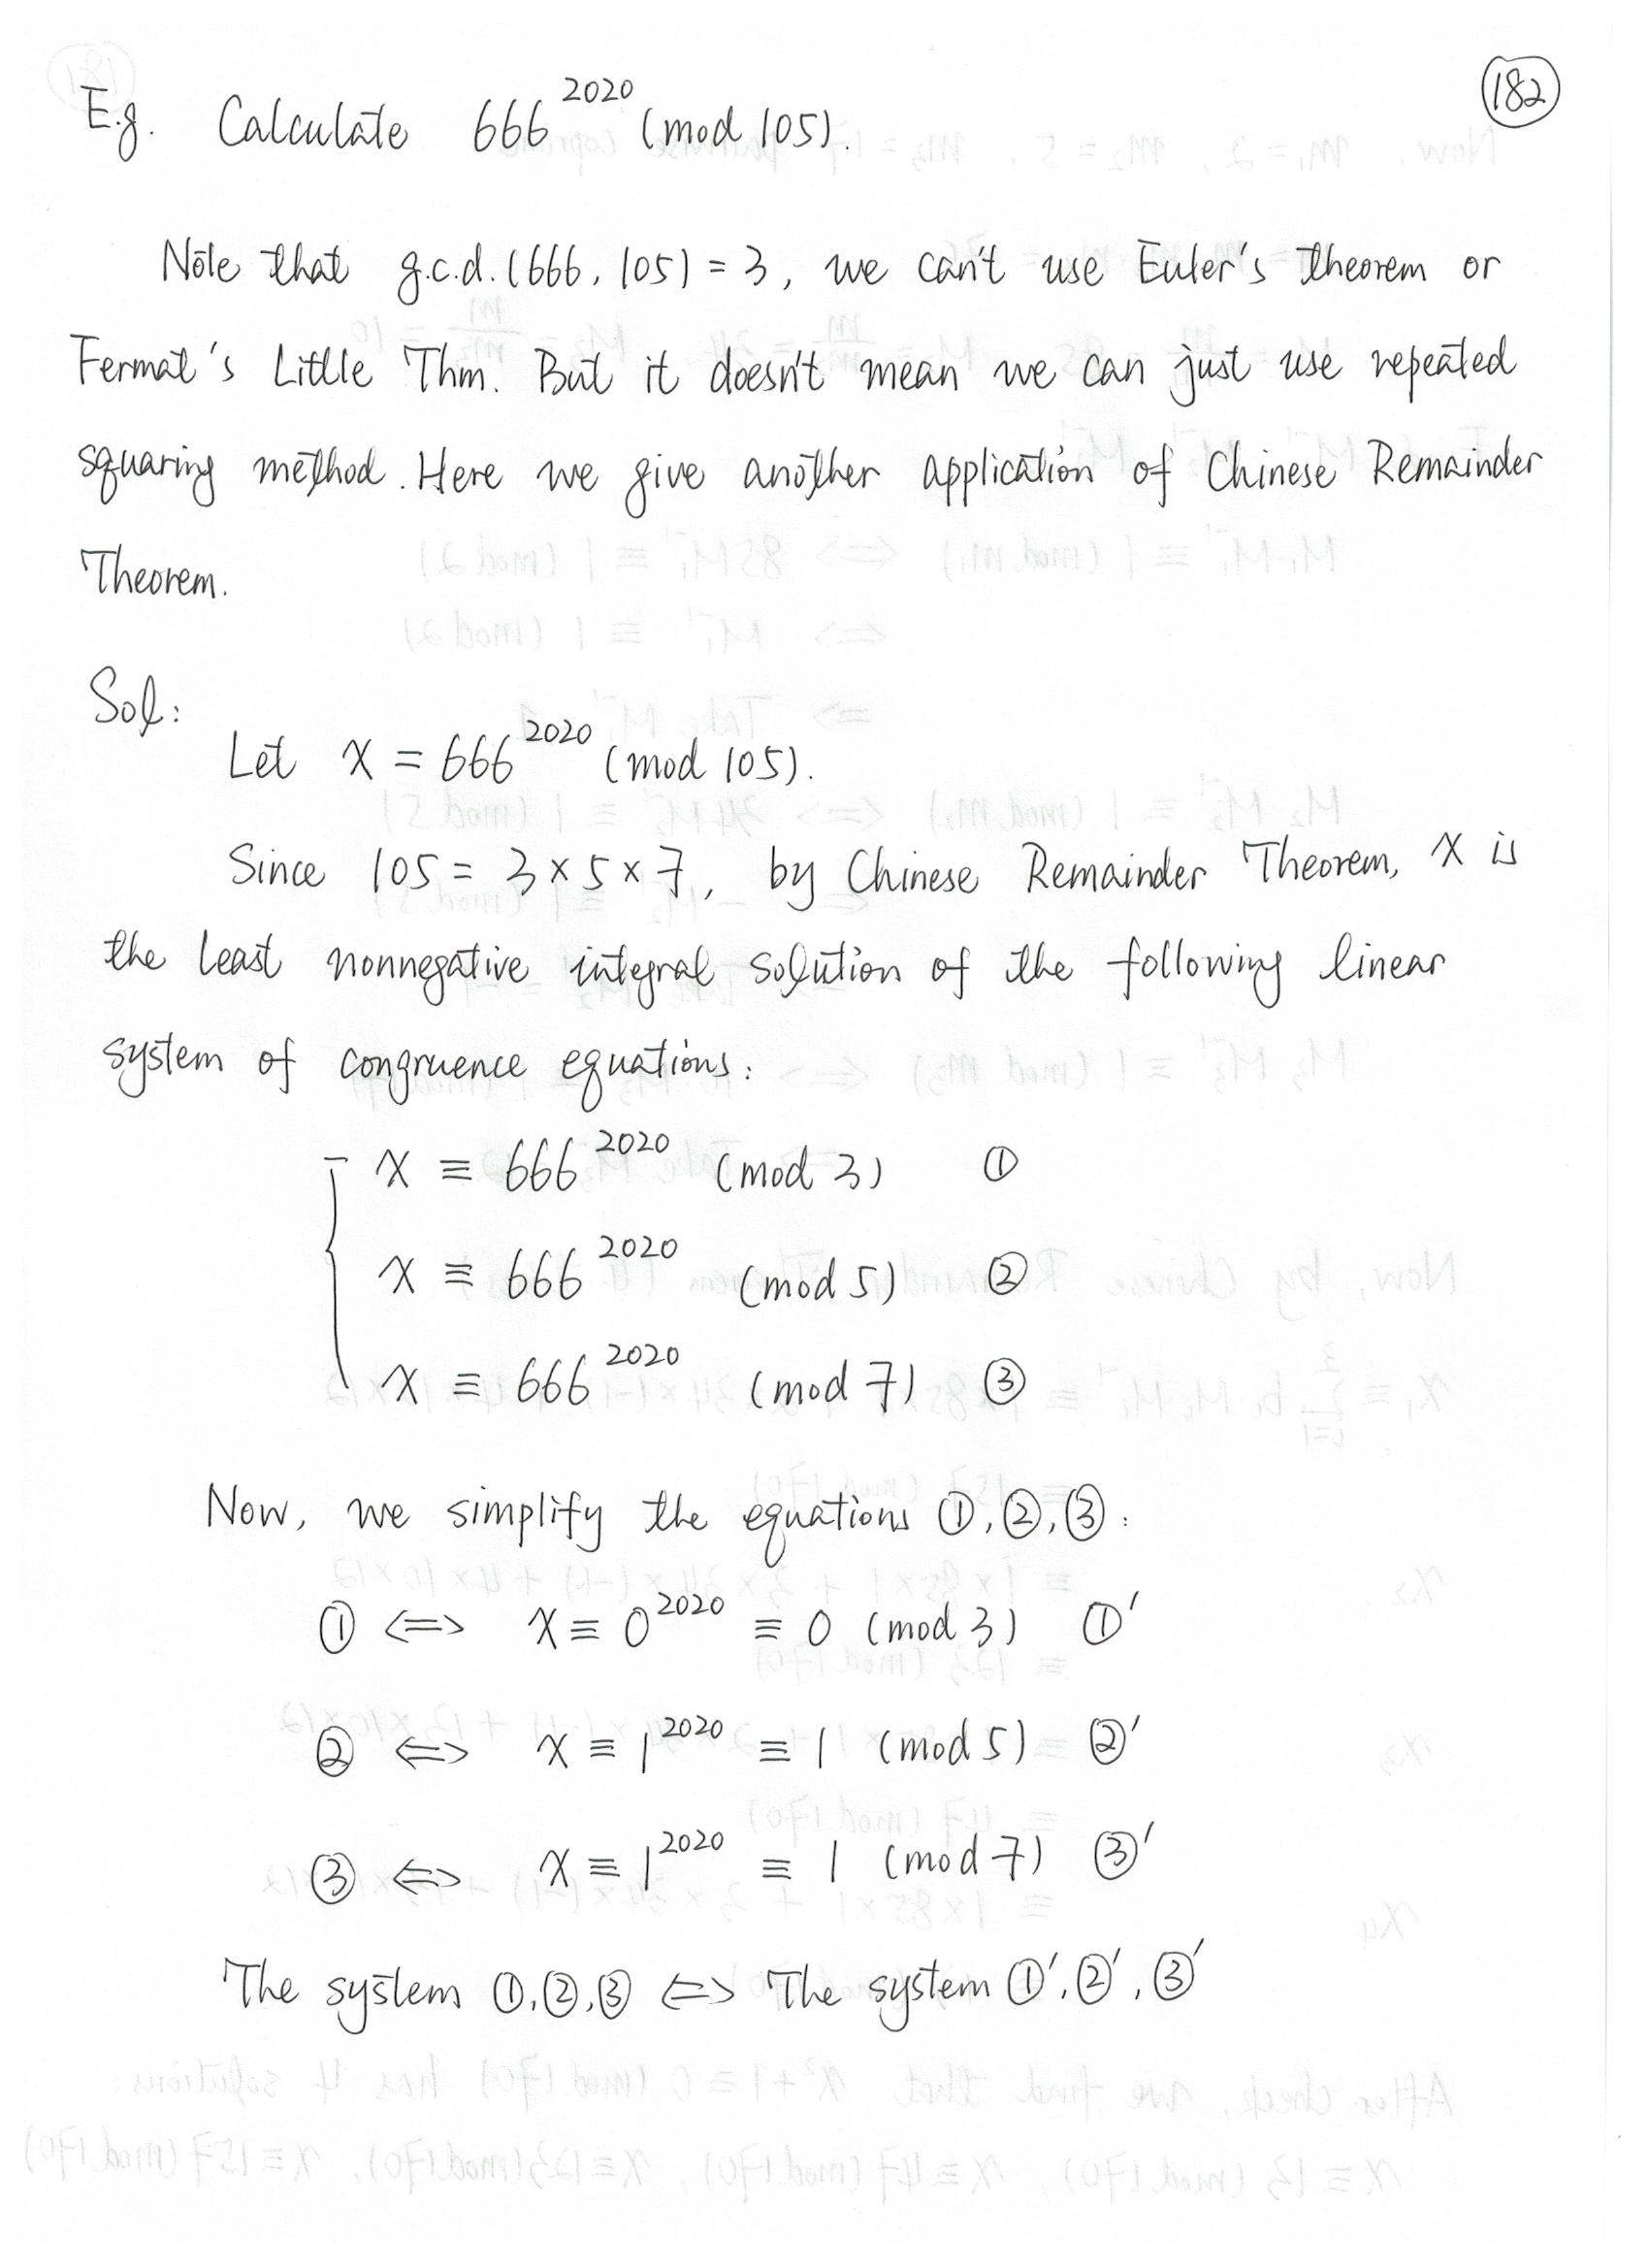 182
E.g. Calculate 666^2020 (mod 105).
Note that g.c.d.(666, 105) = 3, we can't use Euler's theorem or
Fermat's Little Thm. But it doesn't mean we can just use repeated
squaring method. Here we give another application of Chinese Remainder
Theorem.
Sol:
Let x = 666^2020 (mod 105).
Since 105 = 3 × 5 × 7, by Chinese Remainder Theorem, x is
the least nonnegative integral solution of the following linear
system of congruence equations:
x ≡ 666^2020 (mod 3) ①
x ≡ 666^2020 (mod 5) ②
x ≡ 666^2020 (mod 7) ③
Now, we simplify the equations ①, ②, ③:
① <=> x ≡ 0^2020 ≡ 0 (mod 3) ①'
② <=> x ≡ 1^2020 ≡ 1 (mod 5) ②'
③ <=> x ≡ 1^2020 ≡ 1 (mod 7) ③'
The system ①, ②, ③ <=> The system ①', ②', ③'